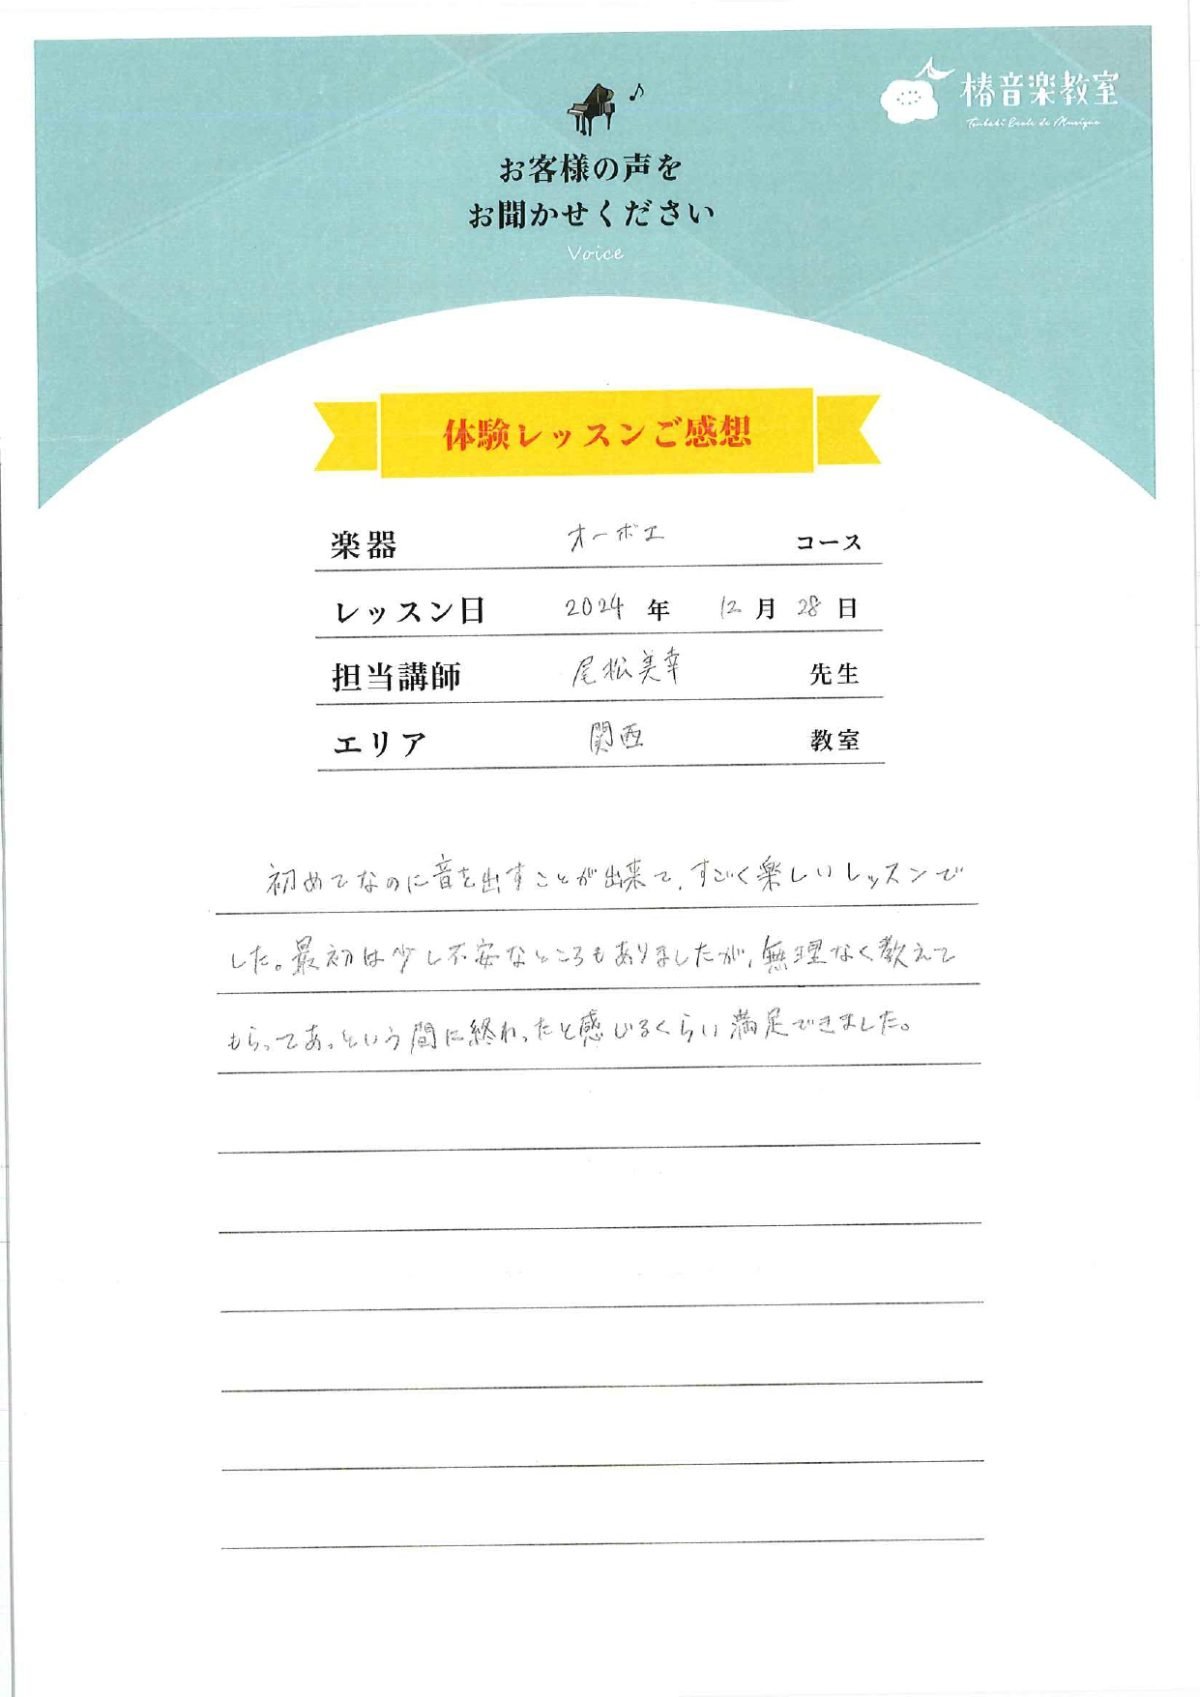 椿音楽教室
Tsubaki Ecole de Musique
お客様の声を
お聞かせください
Voice
体験レッスンご感想
楽器 オーボエ コース
レッスン日 2024 年 12 月 28 日
担当講師 尾松美幸 先生
エリア 関西 教室
初めてなのに音を出すことが出来て、すごく楽しいレッスンで
した。最初は少し不安なところもありましたが、無理なく教えて
もらってあっという間に終わったと感じるくらい満足できました。